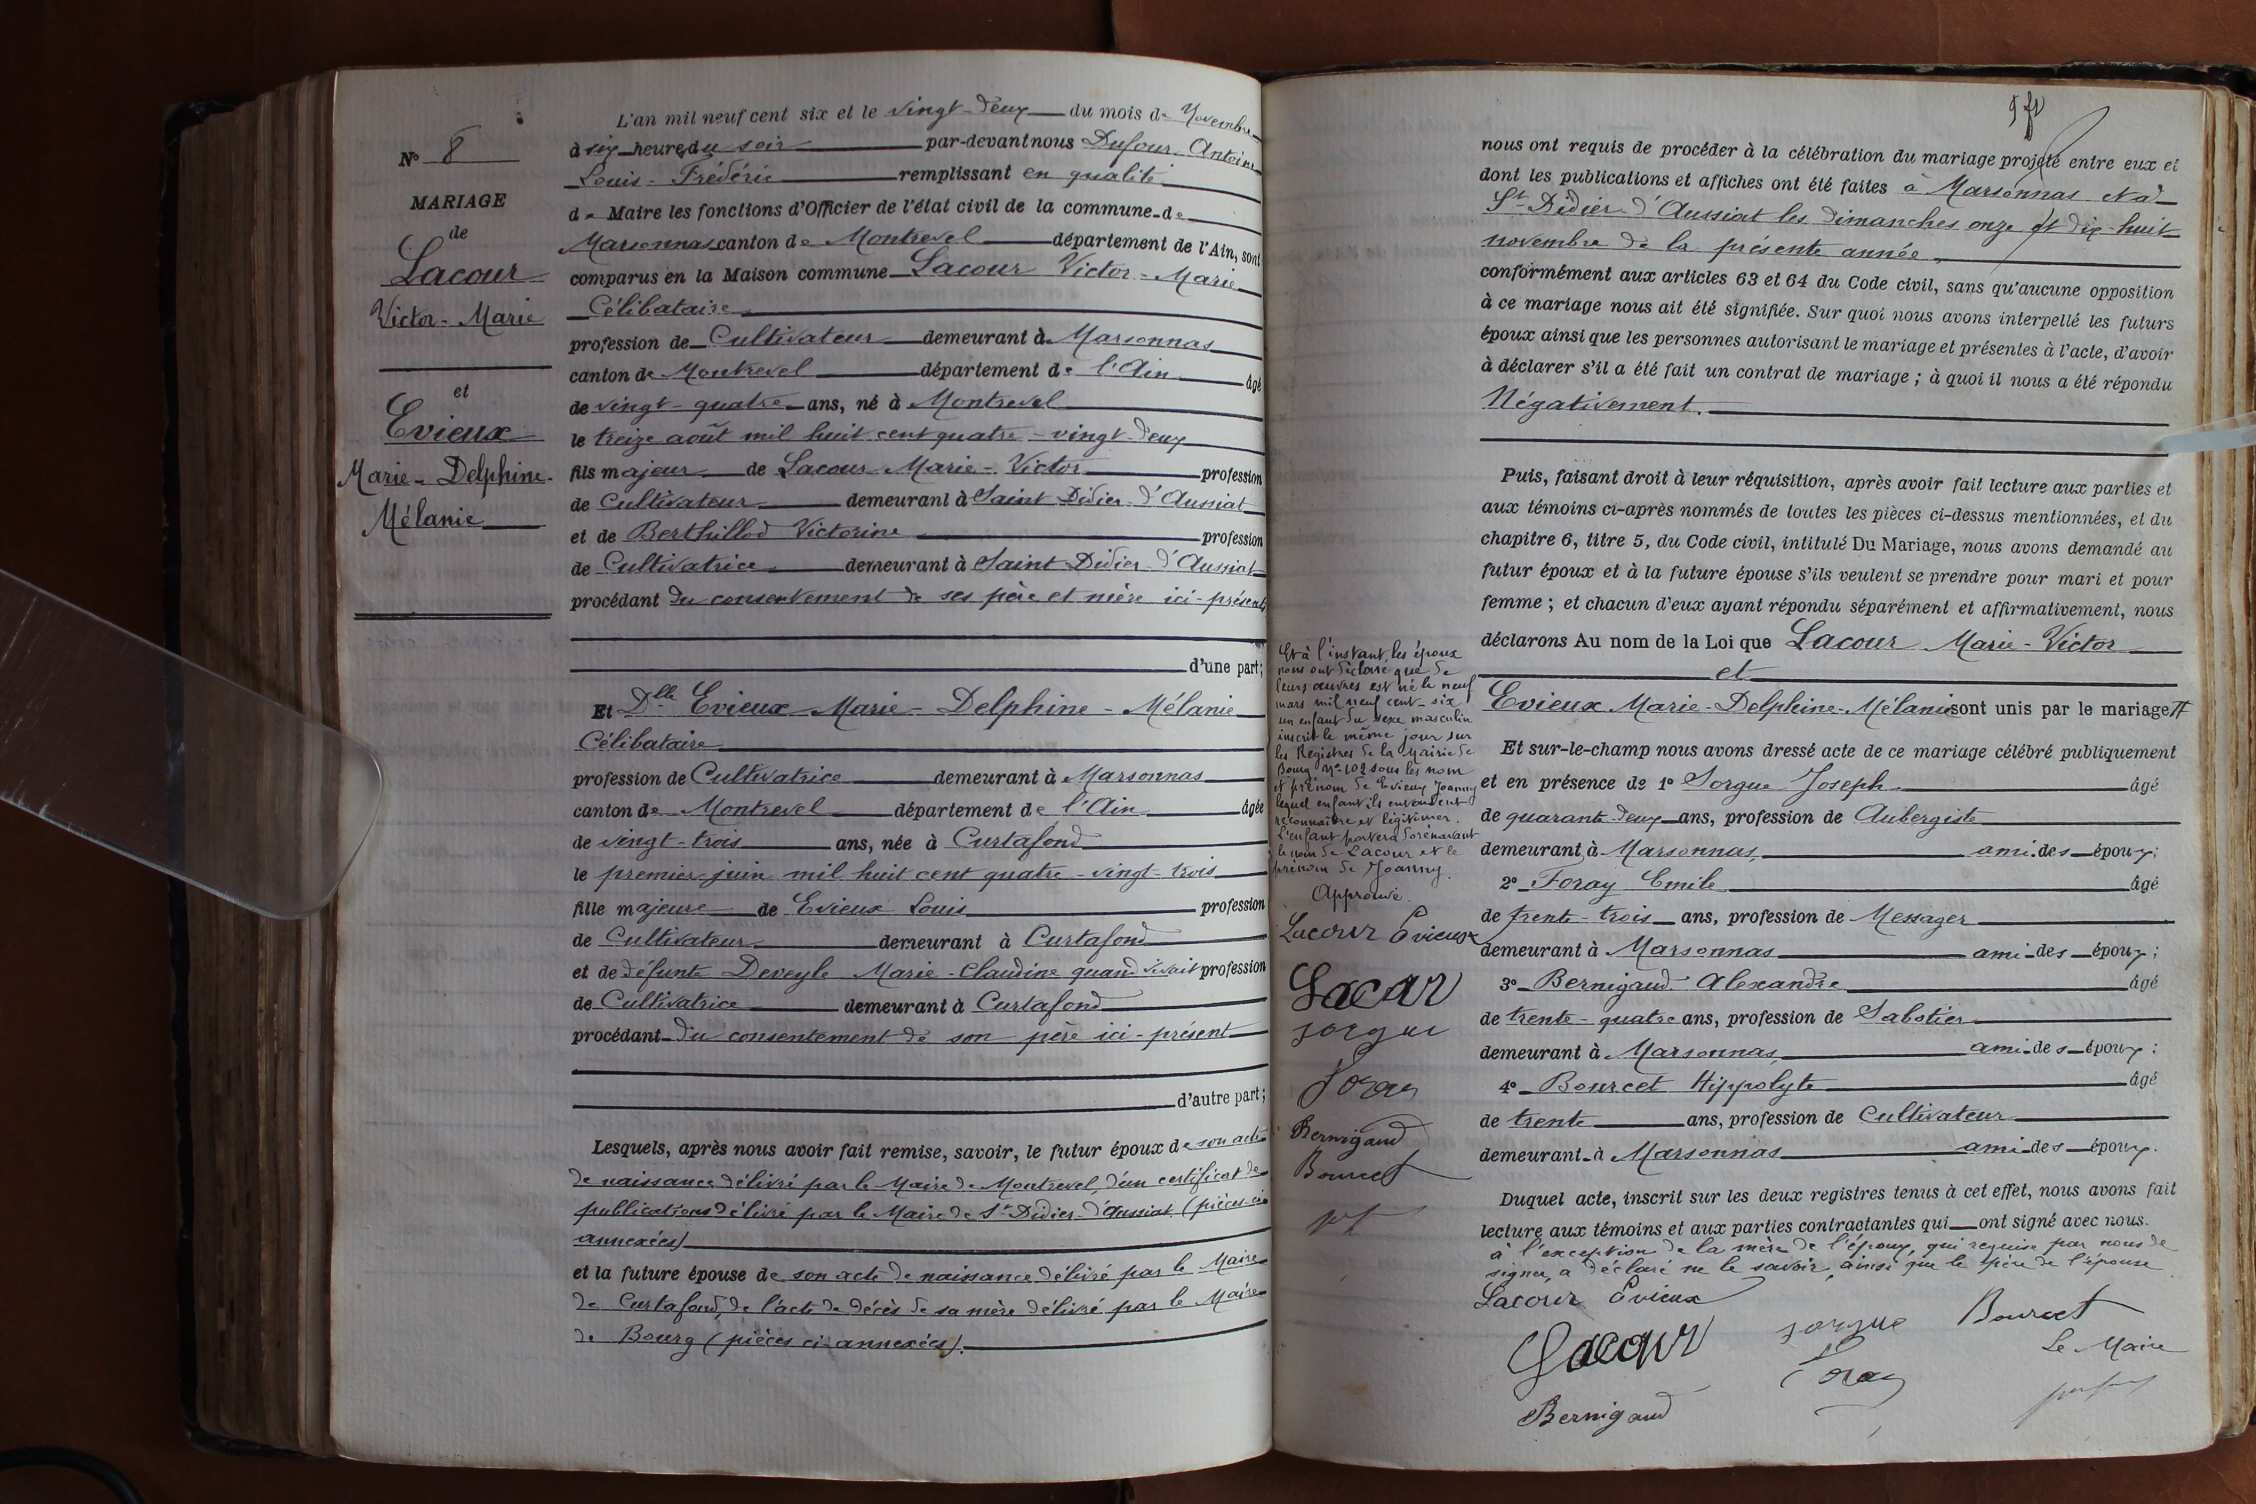 N° 8
MARIAGE
de
Lacour
Victor - Marie
et
Evieux
Marie - Delphine -
Mélanie
L'an mil neuf cent six et le vingt-deux du mois de Novembre
à six heures du soir par-devant nous Dufour Antoine
Louis - Frédéric remplissant en qualité
de Maire les fonctions d'Officier de l'état civil de la commune de
Marsonnas canton de Montrevel département de l'Ain, sont
comparus en la Maison commune Lacour Victor - Marie
Célibataire
profession de Cultivateur demeurant à Marsonnas
canton de Montrevel département de l'Ain âgé
de vingt-quatre ans, né à Montrevel
le treize août mil huit cent quatre-vingt-deux
fils majeur de Lacour Marie - Victor profession
de Cultivateur demeurant à Saint Didier d'Aussiat
et de Berthillod Victorine profession
de Cultivatrice demeurant à Saint Didier d'Aussiat
procédant du consentement de ses père et mère ici-présents
d'une part;
Et Dlle Evieux Marie - Delphine - Mélanie
Célibataire
profession de Cultivatrice demeurant à Marsonnas
canton de Montrevel département de l'Ain âgée
de vingt-trois ans, née à Curtafond
le premier juin mil huit cent quatre-vingt-trois
fille majeure de Evieux Louis profession
de Cultivateur demeurant à Curtafond
et de défunte Deveyle Marie-Claudine quand vivait profession
de Cultivatrice demeurant à Curtafond
procédant du consentement de son père ici-présent
d'autre part;
Lesquels, après nous avoir fait remise, savoir, le futur époux de son acte
de naissance délivré par le Maire de Montrevel, d'un certificat de
publications délivré par le Maire de St Didier d'Aussiat (pièces ci-
annexées)
et la future épouse de son acte de naissance délivré par le Maire
de Curtafond, de l'acte de décès de sa mère délivré par le Maire
de Bourg (pièces ci-annexées).
nous ont requis de procéder à la célébration du mariage projeté entre eux et
dont les publications et affiches ont été faites à Marsonnas et à
St Didier d'Aussiat les dimanches onze et dix-huit
novembre de la présente année,
conformément aux articles 63 et 64 du Code civil, sans qu'aucune opposition
à ce mariage nous ait été signifiée. Sur quoi nous avons interpellé les futurs
époux ainsi que les personnes autorisant le mariage et présentes à l'acte, d'avoir
à déclarer s'il a été fait un contrat de mariage ; à quoi il nous a été répondu
Négativement.
Puis, faisant droit à leur réquisition, après avoir fait lecture aux parties et
aux témoins ci-après nommés de toutes les pièces ci-dessus mentionnées, et du
chapitre 6, titre 5, du Code civil, intitulé Du Mariage, nous avons demandé au
futur époux et à la future épouse s'ils veulent se prendre pour mari et pour
femme ; et chacun d'eux ayant répondu séparément et affirmativement, nous
déclarons Au nom de la Loi que Lacour Marie - Victor
et
Evieux Marie-Delphine-Mélanie sont unis par le mariage
Et sur-le-champ nous avons dressé acte de ce mariage célébré publiquement
et en présence de 1° Sorgue Joseph âgé
de quarante-deux ans, profession de Aubergiste
demeurant à Marsonnas, ami des époux;
2° Foray Emile âgé
de trente-trois ans, profession de Messager
demeurant à Marsonnas ami des époux;
3° Bernigaud Alexandre âgé
de trente-quatre ans, profession de Sabotier
demeurant à Marsonnas, ami des époux;
4° Bourcet Hippolyte âgé
de trente ans, profession de Cultivateur
demeurant à Marsonnas ami des époux.
Duquel acte, inscrit sur les deux registres tenus à cet effet, nous avons fait
lecture aux témoins et aux parties contractantes qui ont signé avec nous.
à l'exception de la mère de l'époux, qui requise par nous de
signer, a déclaré ne le savoir, ainsi que le père de l'épouse.
Lacour Evieux
Lacour Sorgue Bourcet
Foray Le Maire
Bernigaud
Et à l'instant, les époux
nous ont déclaré que de
leurs œuvres est né le neuf
mars mil neuf cent-six
un enfant du sexe masculin
inscrit le même jour sur
les Registres de la Mairie de
Bourg N° 102 sous les nom
et prénom de Evieux Joanny
lequel enfant ils entendent
reconnaître et légitimer.
L'enfant portera dorénavant
le nom de Lacour et le
prénom de Joanny.
Approuvé.
Lacour Evieux
Lacour
Sorgue
Foray
Bernigaud
Bourcet